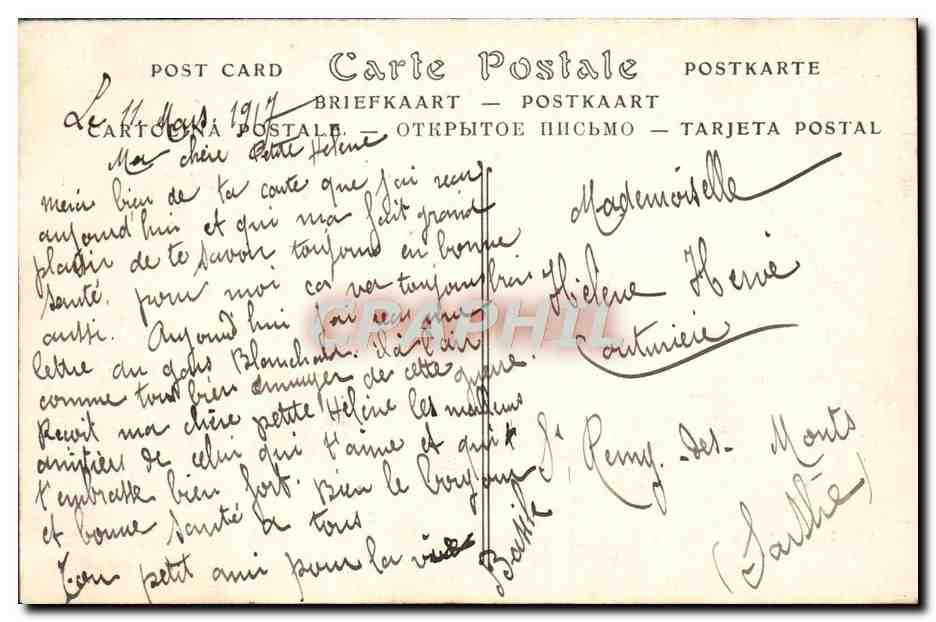 POST CARD Carte Postale POSTKARTE
BRIEFKAART — POSTKAART
CARTOLINA POSTALE — ОТКРЫТОЕ ПИСЬМО — TARJETA POSTAL
Le 11 Mars 1917
Ma chère Petite Hélène
merci bien de ta carte que j'ai reçu
aujourd'hui et qui ma fait grand
plaisir de te savoir toujours en bonne
santé. pour moi ca va toujours bien
aussi. Aujourd'hui j'ai reçu une
lettre du gars Blanchard. il a l'air
comme tous bien ennuyer de cette guerre.
Reçoit ma chère petite Hélène les meilleurs
amitiers de celui qui t'aime et qui
t'embrasse bien fort. Bien le bonjour
et bonne santé a tous
Ton petit ami pour la vie
Basile
Mademoiselle
Hélène Hervé
Couturière
St Remy-des-Monts
(Sarthe)
CPAPHIL